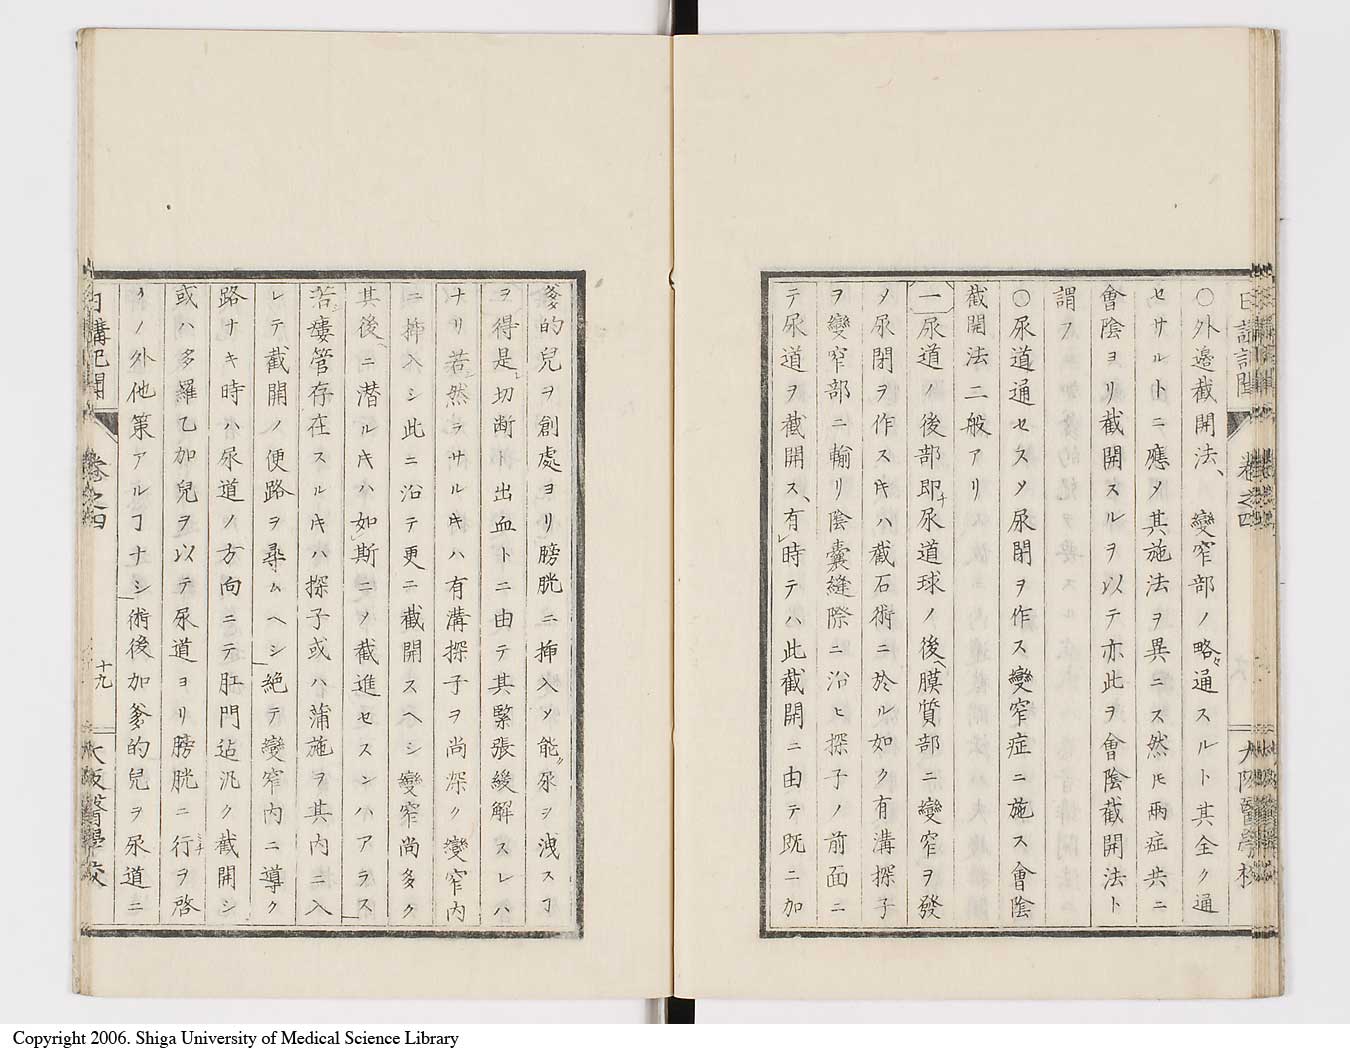 日講記聞 卷之四 大阪醫學校
○外邊截開法、變窄部ノ略々通スルト其全ク通
セサルトニ應メ其施法ヲ異ニス然ㇳモ兩症共ニ
會陰ヨリ截開スルヲ以テ亦此ヲ會陰截開法ト
謂フ
○尿道通セスメ尿閉ヲ作ス變窄症ニ施ス會陰
截開法二般アリ
一尿道ノ後部即チ尿道球ノ後ヘ膜質部ニ變窄ヲ發
メ尿閉ヲ作スキハ截石術ニ於ル如ク有溝探子
ヲ變窄部ニ輸リ陰囊縫際ニ沿ヒ探子ノ前面ニ
テ尿道ヲ截開ス、有時テハ此截開ニ由テ既ニ加
爹的兒ヲ創處ヨリ膀胱ニ挿入メ能ク尿ヲ洩スヿ
ヲ得是レ切断ト出血トニ由テ其緊張緩解スレハ
ナリ若シ然ラサルキハ有溝探子ヲ尚深ク變窄内
ニ挿入シ此ニ沿テ更ニ截開スヘシ變窄尚多ク
其後ヘニ潜ルキハ如斯ニメ截進セスンハアラス
若シ瘻管存在スルキハ探子或ハ蒲施ヲ其内ニ入
レテ截開ノ便路ヲ尋ムヘシ絶テ變窄内ニ導ク
路ナキ時ハ尿道ノ方向ニテ肛門迠汎ク截開シ
或ハ多羅乙加兒ヲ以テ尿道ヨリ膀胱ニ行ヲ啓
クノ外他策アルヿナシ術後加爹的兒ヲ尿道ニ
日講記聞 卷之四 十九 大阪醫學校
Copyright 2006. Shiga University of Medical Science Library